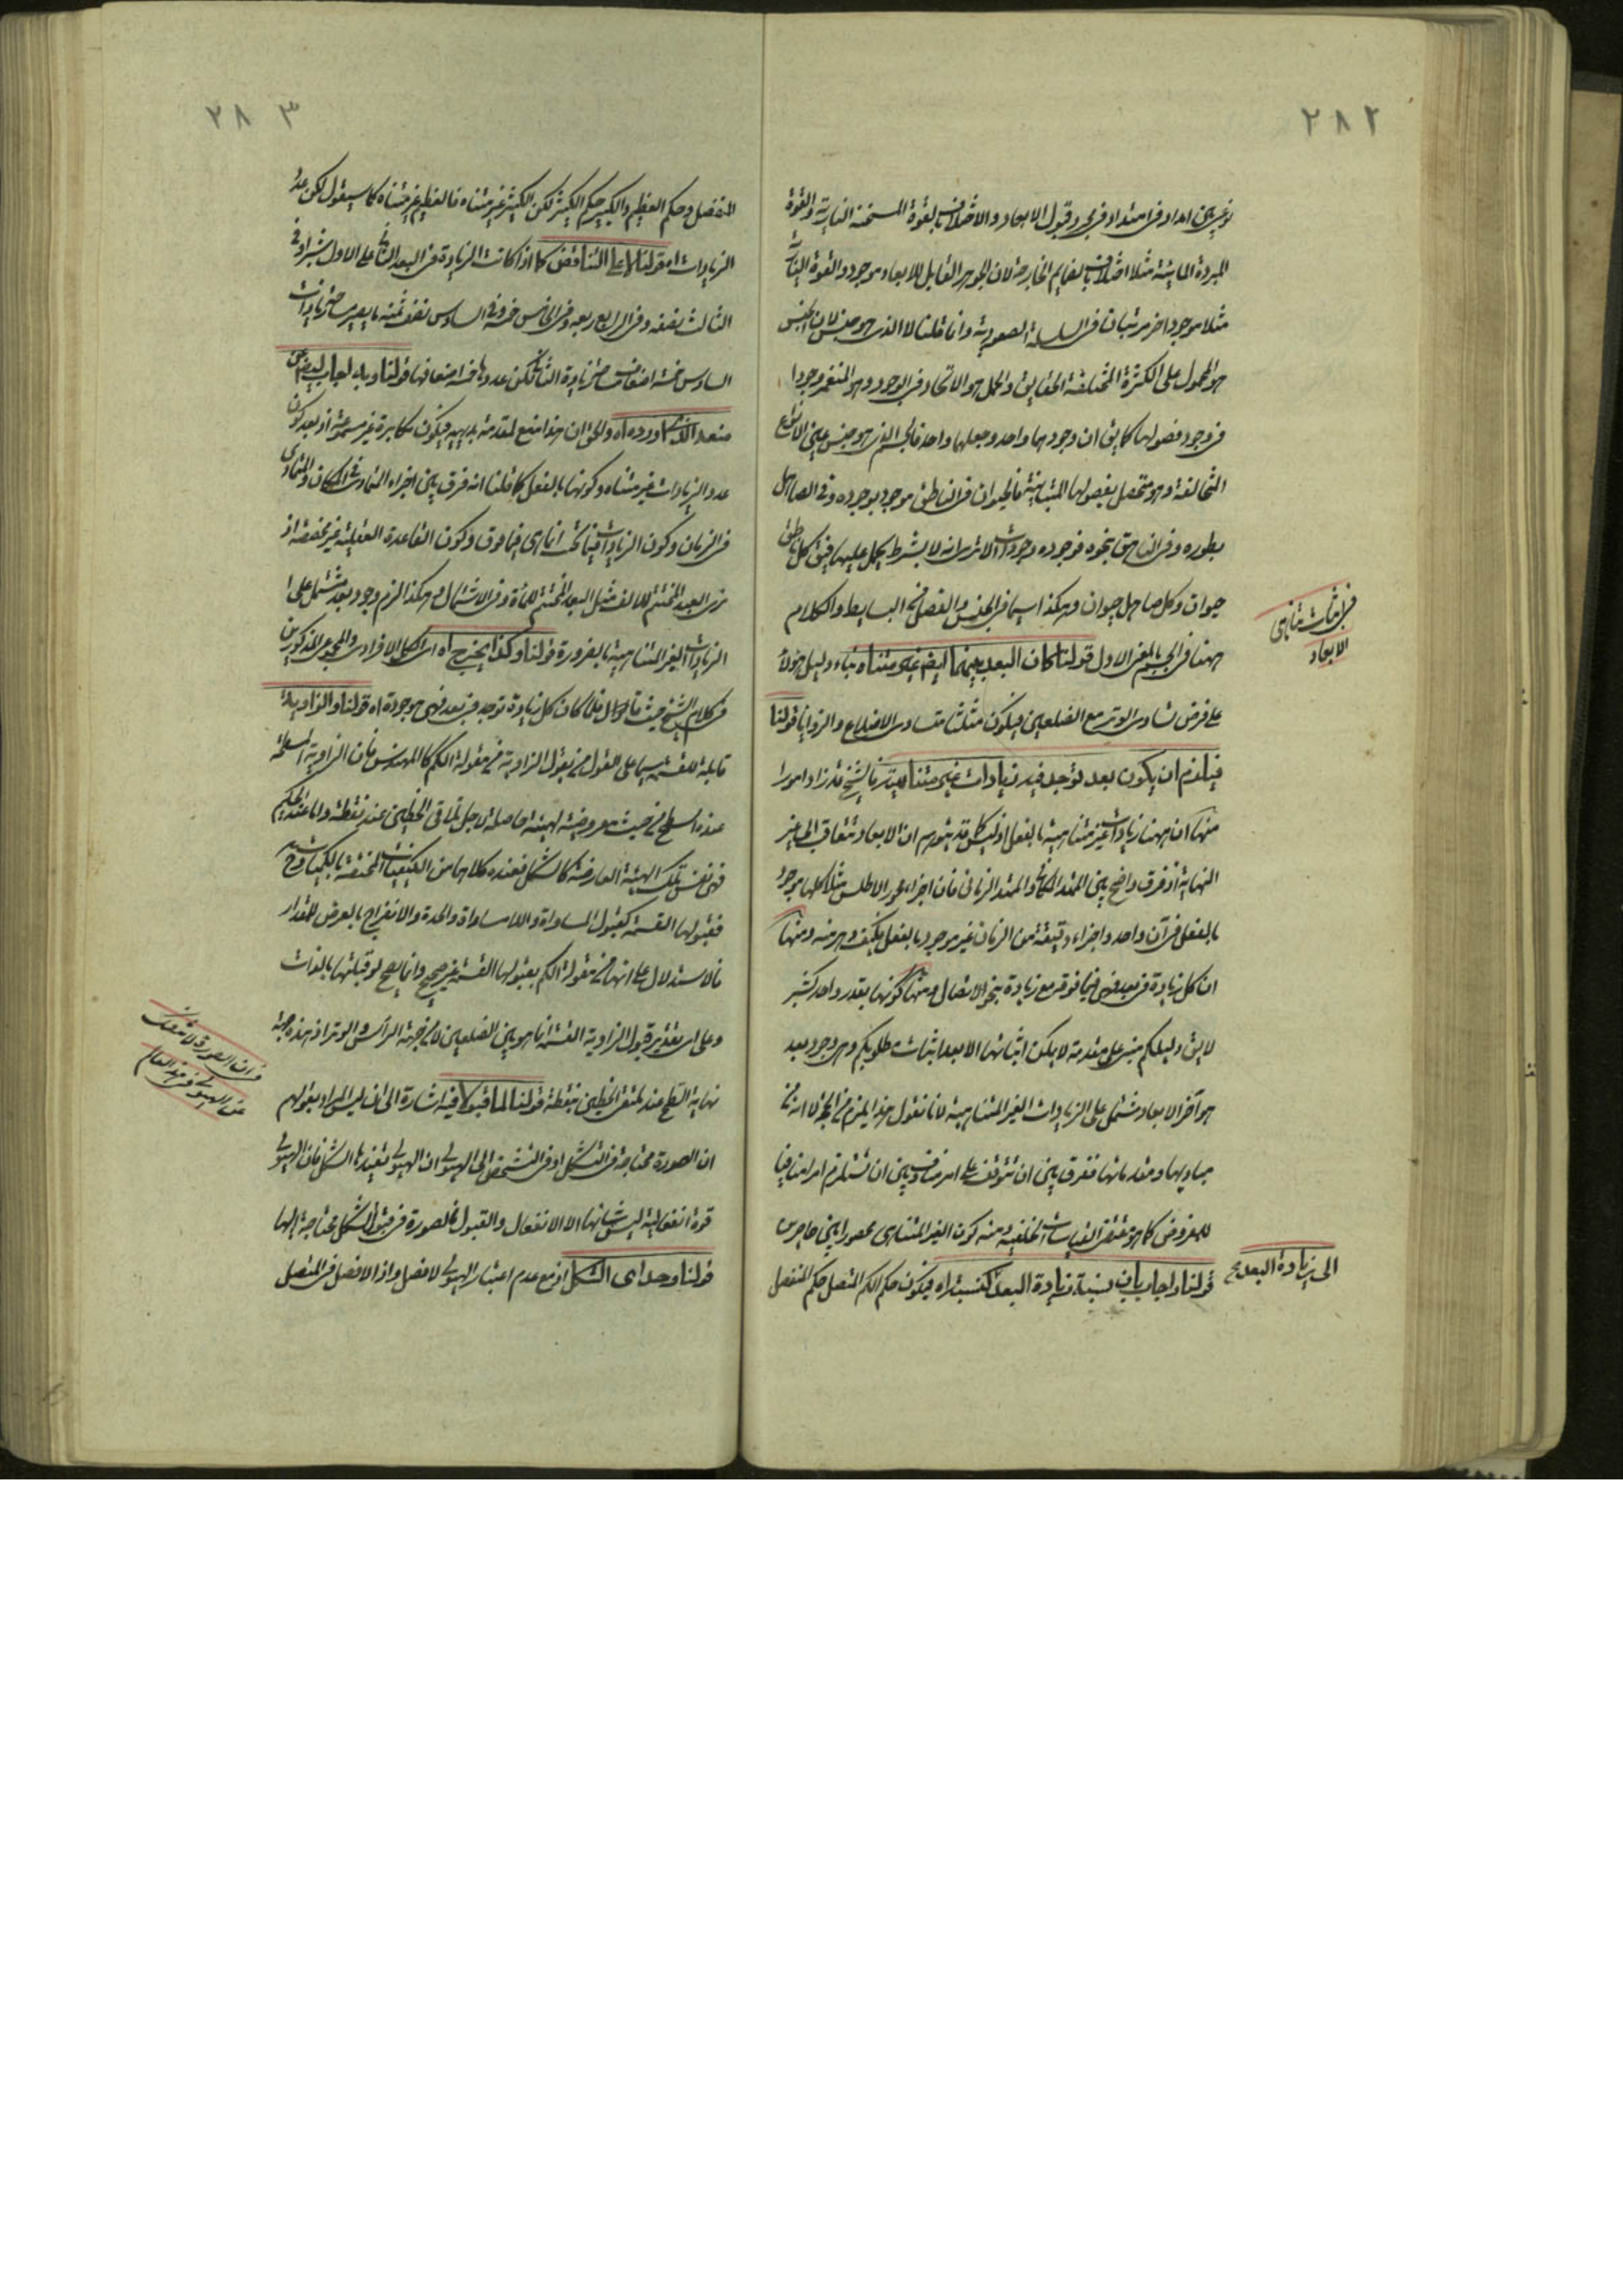 ٢٨٢
نوعين امداد فى امتداد فى مجرد قبول الابعاد والاختلاف بالقوة المسخنة النارية والقوة
المبردة المائية مثلا اختلاف بالضمايم الخارجة لان الجوهر القابل للابعاد موجود والقوة النارية
مثلا موجود اخر مرتبتان فى السلسلة الصعودية وانما قلنا لا الذى هو جنس لان الجنس
هو المحمول على الكثرة المختلفة الحقايق والحمل هو الاتحاد فى الوجود وهو المنغمر وجودا
فى وجود فصولها كما يق ان وجودهما واحد وجعلهما واحد فالجسم الذى هو جنس عين الانواع
المتخالفة وهو متحصل بفصولها المتباينة فالحيوان فى الناطق موجود بوجوده وفى الصاهل
بطوره وفى الناهق بنحوه فوجوده وجودات الا ترى انه لا بشرط يحمل عليها فيق كل ناطق
حيوان وكل صاهل حيوان وهكذا سيما فى الجنس والفصل فى البسايط والكلام
ههنا فى الجسم بالمعنى الاول قولنا كان البعد بينهما ايضا غير متناه بناء دليل هؤلاء
على فرض تساوى الوتر مع الضلعين فيكون مثلثا متساوى الاضلاع والزوايا قولنا
فيلزم ان يكون بعد توجد فيه زيادات غير متناهية فالشيخ قد زاد امورا
منها ان ههنا زيادات غير متناهية بالفعل اذ ليس كما قد يتوهم ان الابعاد تتعاقب الى غير
النهاية اذ فرق واضح بين الممتد المكانى والممتد الزمانى فان اجزاء محور الاطلس مثلا كلها موجود
بالفعل فى آن واحد واجزاء دقيقة من الزمان غير موجود بالفعل فكيف دهر منه ومنها
ان كل زيادة فى بعد فهى فيما فوقه مع زيادة بنحو الاتصال ومنها كونها بقدر واحد كشبر
لا يق دليلكم مبنى على مقدمة لا يمكن اثباتها الا بعد اثبات مطلوبكم وهى وجود بعد
هو آخر الابعاد مشتمل على الزيادات الغير المتناهية لانا نقول هذا يلزم من الحجة لا انه من
مباديها ومقدماتها ففرق بين ان تتوقف على امر مناف وبين ان تستلزم امرا منافيا
للمفروض كما هو مقتضى القياسات الخلفية ومنه كون الغير المتناهى محصورا بين حاصرين
قولنا واجاب بان نسبة زيادة البعد كنسبة اه فيكون حكم الكم المتصل حكم المنفصل
فى اثبات تناهى
الابعاد
الى زيادة البعد صح
٢٨٣
المنفصل وحكم العظيم والكبير حكم الكثير لكن الكثير غير متناه فالعظيم غير متناه كما سيقول لكن عدد
الزيادات اه قولنا لا على التناقض كما اذا كانت الزيادة فى البعد الثانى على الاول شبرا وفى
الثالث نصفه وفى الرابع ربعه وفى الخامس ثمنه وفى السادس نصف ثمنه
السادس خمسة اضعاف زيادة الثانى لكن عددها خمسة اضعافها قولنا وبه يجاب ايضا عن
منعه الذى اورده اه والحق ان هذا منع لمقدمة بديهية فيكون مكابرة غير مسموعة اذ بعد كون
عدد الزيادات غير متناه وكونها بالفعل كما قلنا انه فرق بين اجزاء المتمادى فى المكان والمتمادى
فى الزمان وكون الزيادات فيما تحت اياها هى فيما فوق وكون القاعدة العقلية غير مخصصة اذ
نرى البعد المختتم للالف مثل البعد المختتم للمأة وفى الاشتمال وهكذا لزم وجود بعد مشتمل على
الزيادات الغير المتناهية بالضرورة قولنا وكذا يخرج اه اى الكل الافرادى والمجموعى المذكورين
فى كلام الشيخ حيث قال اولا فلما كان كل زيادة توجد فى بعد فهى موجودة اه قولنا والزاوية
قابلة للقسمة سيما على القول من يقول الزاوية من مقولة الكم كالمهندس فان الزاوية المسطحة
عنده سطح من حيث معروضية لهيئة حاصلة لاجل تلاقى الخطين عند نقطة واما عند الحكيم
فهى نفس تلك الهيئة العارضة كالشكل فعنده كلاهما من الكيفيات المختصة بالكميات وح
فقبولها القسمة كقبول المساواة واللامساواة والحدة والانفراج بالعرض للمقدار
فالاستدلال على انها من مقولة الكم بقبولها القسمة غير صحيح وانما يصح لو قبلتها بالذات
وعلى اى تقدير قبول الزاوية القسمة انما هو بين الضلعين لا من جهة الرأس والوتر اذ هذه جهة
نهاية السطح عند ملتقى الخطين بنقطة قولنا لما قبولا فيه اشارة الى انه ليس المراد بقولهم
ان الصورة محتاجة فى التشكل او فى التشخص الى الهيولى ان الهيولى تفيدها الشكل فان الهيولى
قوة انفعالية ليس شانها الا الانفعال والقبول فالصورة فى قبول الشكل محتاجة اليها
قولنا وحداى الشكل اذ مع عدم اعتبار الهيولى لا فصل واذ لا فصل فى المتصل
فى ان الصورة لا تنفك
عن الهيولى فى هذا العالم